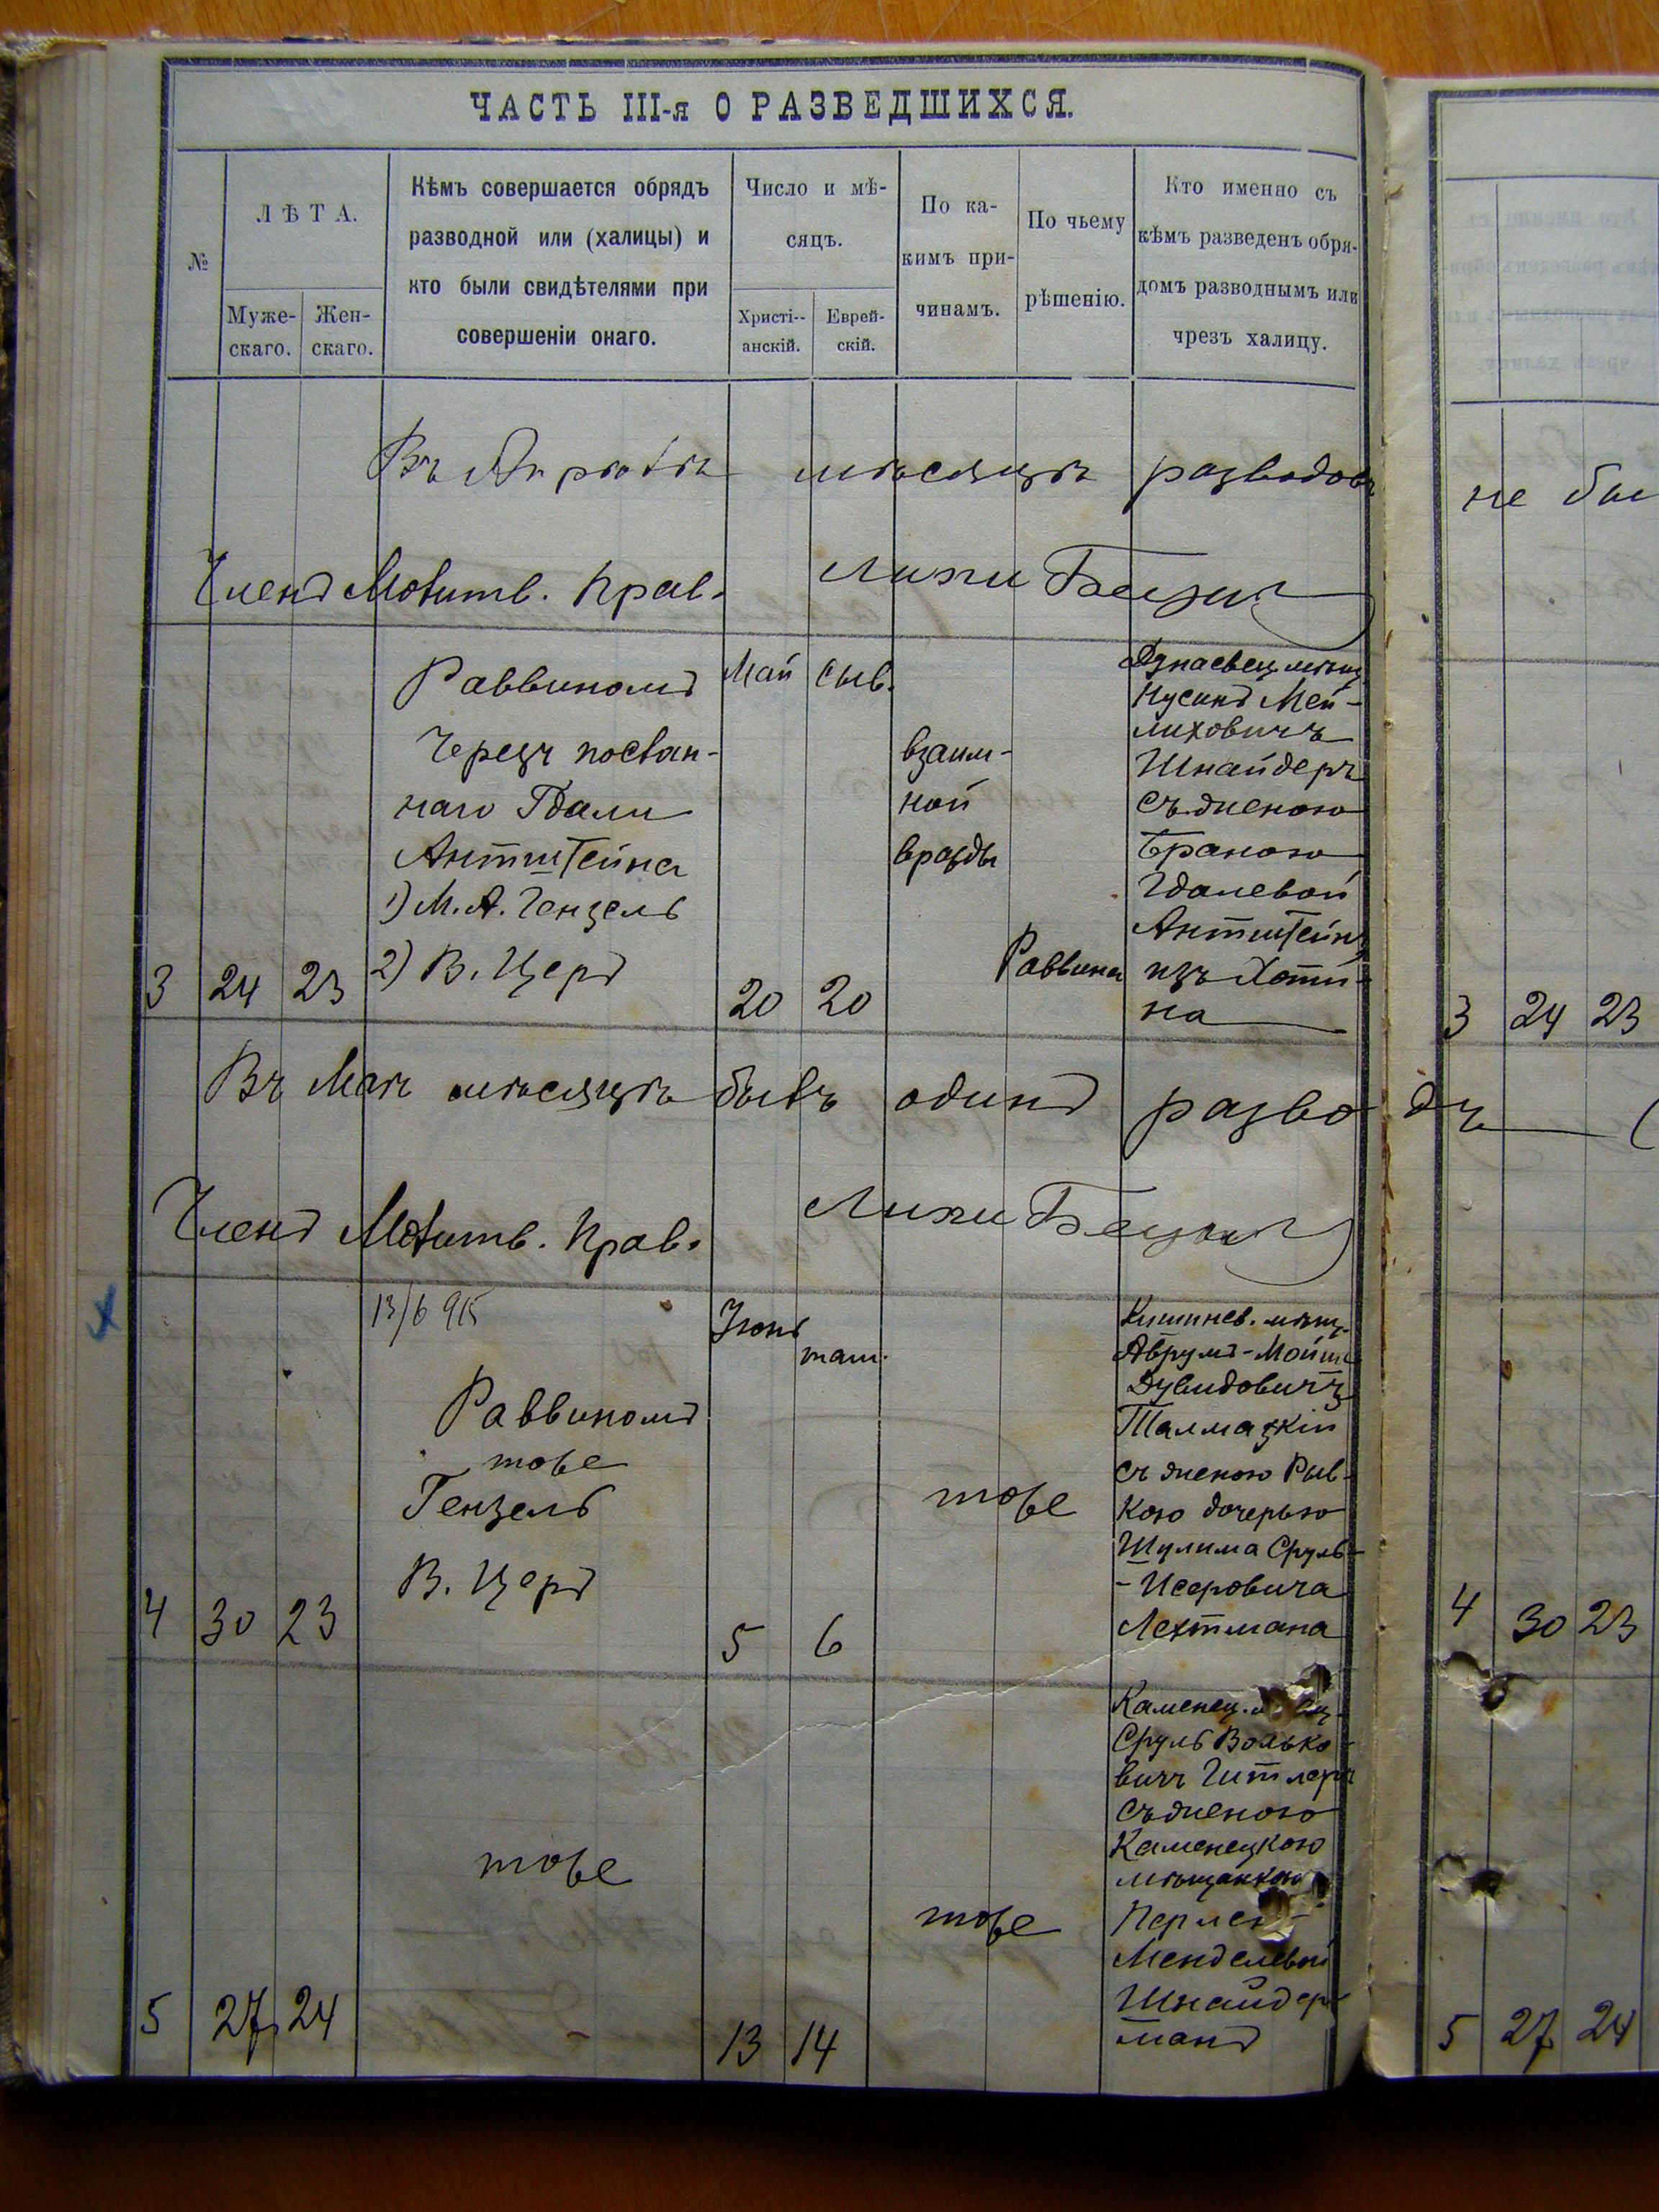 ЧАСТЬ III-я О РАЗВЕДШИХСЯ.
№
ЛѢТА.
Муже-
скаго.
Жен-
скаго.
Кѣмъ совершается обрядъ
разводной или (халицы) и
кто были свидѣтелями при
совершеніи онаго.
Число и мѣ-
сяцъ.
Христі--
анскій.
Еврей-
скій.
По ка-
кимъ при-
чинамъ.
По чьему
рѣшенію.
Кто именно съ
кѣмъ разведенъ обря-
домъ разводнымъ или
чрезъ халицу.
Въ Апрѣлѣ мѣсяцѣ разводовъ не был
Членъ Молитв. Прав.
3 24 23
Раввиномъ
черезъ послан-
наго Гдали
Антштейна
1) М. А. Гензель
2) В. Церъ
Май Сыв.
20 20
взаим-
ной
вражды
Раввина
Дунаевец. мѣщ.
Нусинъ Мей-
лиховичъ
Шнайдеръ
съ женою
Браною
Гдалевой
Антштейнъ
изъ Хоти-
на
3 24 23
Въ Маѣ мѣсяцѣ былъ одинъ разво дъ
Членъ Молитв. Прав.
13/6 915
4 30 23
Раввиномъ
тоже
Гензель
В. Церъ
Іюнь
там.
5 6
тоже
Кишинев. мѣщ.
Аврумъ-Мойше
Дувидовичъ
Талмазкій
съ женою Рыв-
кою дочерью
Шулима Сруль-
-Исеровича
Лехтмана
4 30 23
5 27 24
тоже
13 14
тоже
Каменец.
Сруль Волько-
вичъ Гитлеръ
съ женою
Каменецкою
мѣщанкою
Менделевой
Шнайдер-
манъ
5 27 24